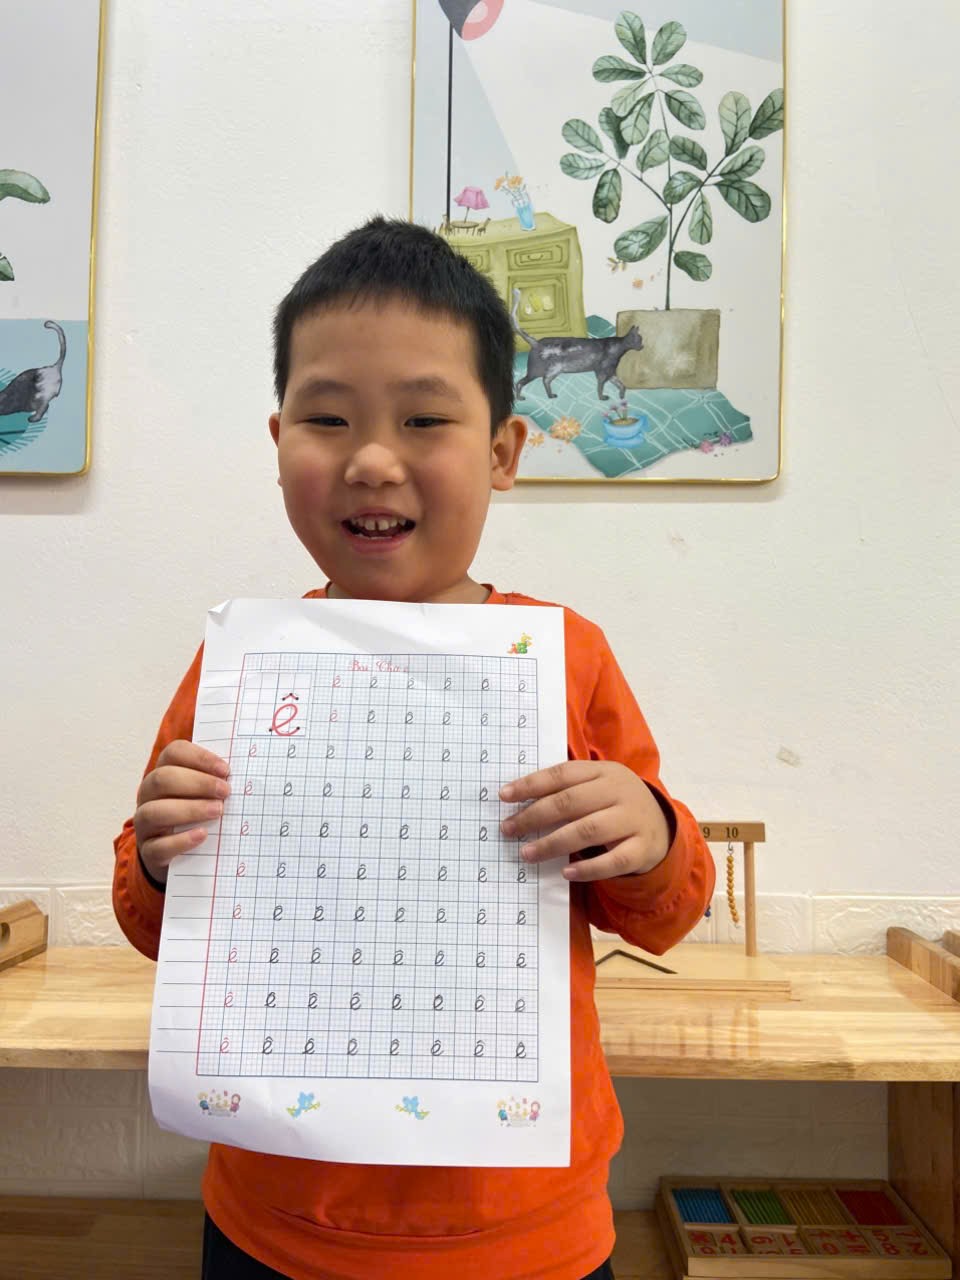 ê
ê ê ê ê ê ê
ê ê ê ê ê ê
ê ê ê ê ê ê ê ê
ê ê ê ê ê ê ê
ê ê ê ê ê ê ê
ê ê ê ê ê ê ê ê
ê ê ê ê ê ê ê ê
ê ê ê ê ê ê ê ê
ê ê ê ê ê ê ê ê
ê ê ê ê ê ê ê ê
9 10